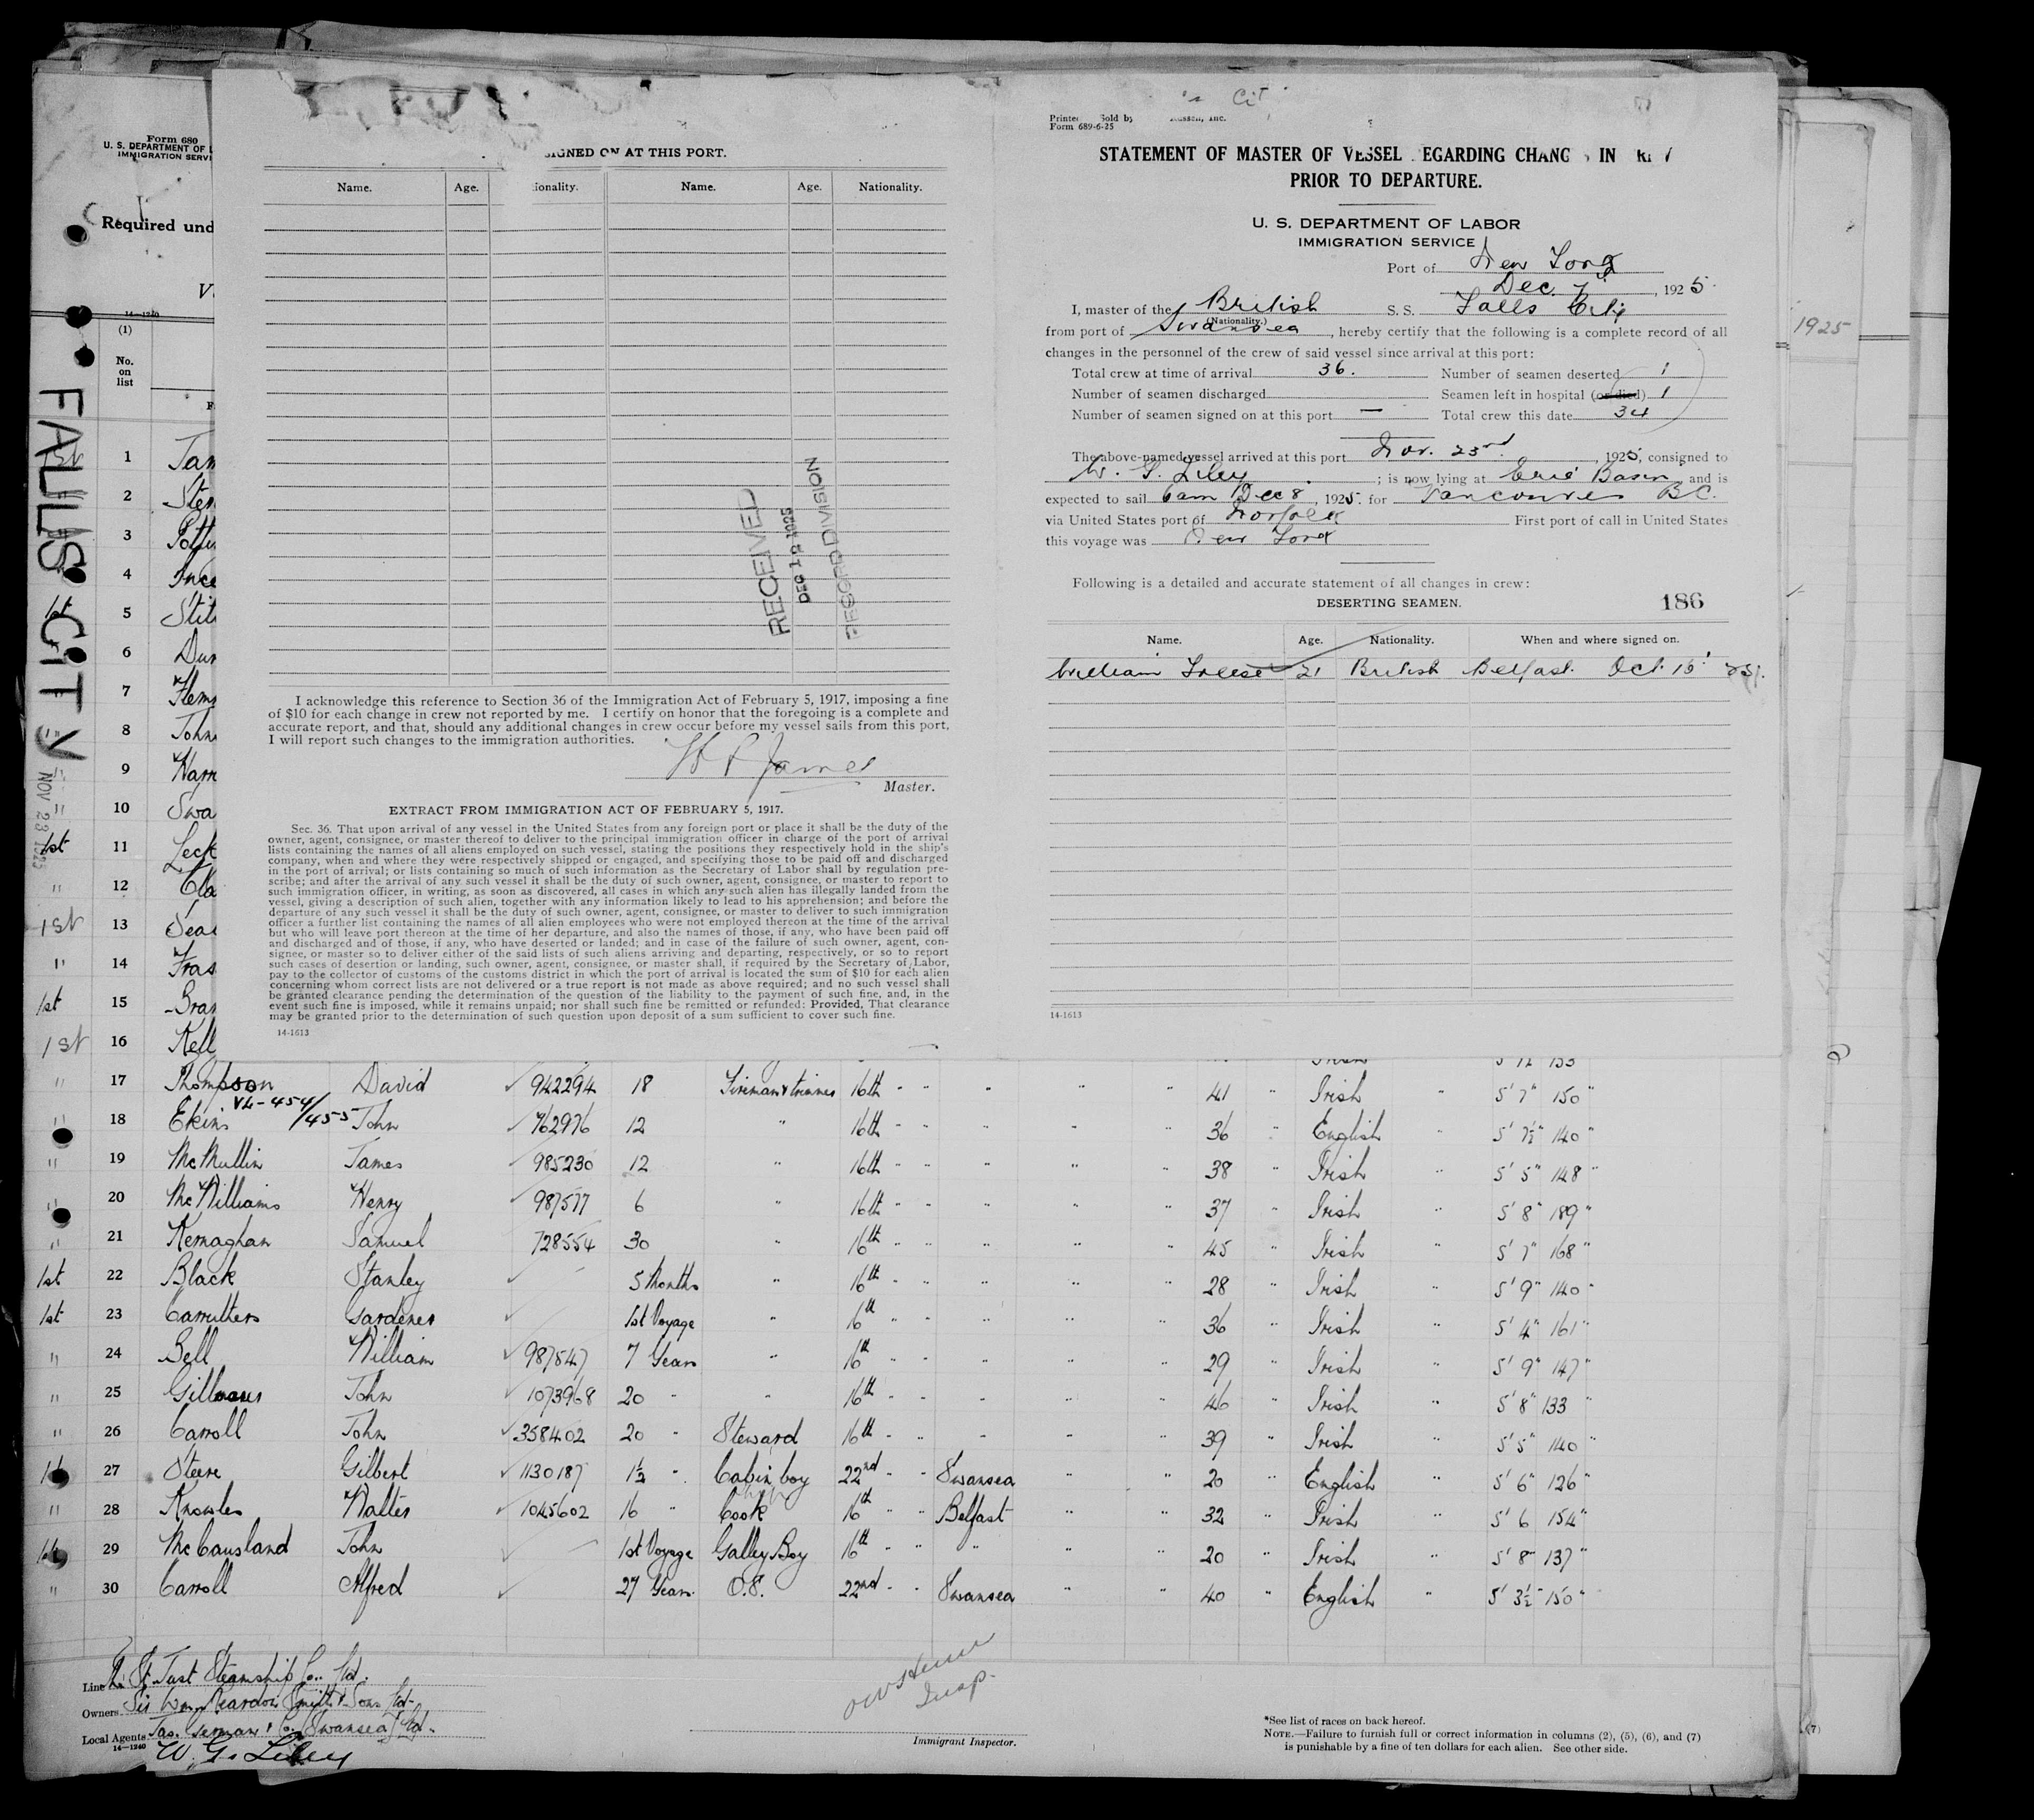 Form 680
U. S. DEPARTMENT OF L
IMMIGRATION SERVI
Required und
14—1240
(1)
No.
on
list
FALLS CITY
NOV 23 1925
1 Jam
2 Ster
3 Potti
4 Ince
5 Stit
1st
6 Dun
7 Flem
8 John
9 Harr
10 Swa
1st 11 Leck
" 12 Cla
1st 13 Sea
" 14 Fras
1st 15 Bran
1st 16 Kell
SIGNED ON AT THIS PORT.
Name. Age. ionality. Name. Age. Nationality.
RECEIVED
DEC 1925
RECORD DIVISION
I acknowledge this reference to Section 36 of the Immigration Act of February 5, 1917, imposing a fine
of $10 for each change in crew not reported by me. I certify on honor that the foregoing is a complete and
accurate report, and that, should any additional changes in crew occur before my vessel sails from this port,
I will report such changes to the immigration authorities.
W R James
Master.
EXTRACT FROM IMMIGRATION ACT OF FEBRUARY 5, 1917.
Sec. 36. That upon arrival of any vessel in the United States from any foreign port or place it shall be the duty of the
owner, agent, consignee, or master thereof to deliver to the principal immigration officer in charge of the port of arrival
lists containing the names of all aliens employed on such vessel, stating the positions they respectively hold in the ship's
company, when and where they were respectively shipped or engaged, and specifying those to be paid off and discharged
in the port of arrival; or lists containing so much of such information as the Secretary of Labor shall by regulation pre-
scribe; and after the arrival of any such vessel it shall be the duty of such owner, agent, consignee, or master to report to
such immigration officer, in writing, as soon as discovered, all cases in which any such alien has illegally landed from the
vessel, giving a description of such alien, together with any information likely to lead to his apprehension; and before the
departure of any such vessel it shall be the duty of such owner, agent, consignee, or master to deliver to such immigration
officer a further list containing the names of all alien employees who were not employed thereon at the time of the arrival
but who will leave port thereon at the time of her departure, and also the names of those, if any, who have been paid off
and discharged and of those, if any, who have deserted or landed; and in case of the failure of such owner, agent, con-
signee, or master so to deliver either of the said lists of such aliens arriving and departing, respectively, or so to report
such cases of desertion or landing, such owner, agent, consignee, or master shall, if required by the Secretary of Labor,
pay to the collector of customs of the customs district in which the port of arrival is located the sum of $10 for each alien
concerning whom correct lists are not delivered or a true report is not made as above required; and no such vessel shall
be granted clearance pending the determination of the question of the liability to the payment of such fine, and, in the
event such fine is imposed, while it remains unpaid; nor shall such fine be remitted or refunded: Provided, That clearance
may be granted prior to the determination of such question upon deposit of a sum sufficient to cover such fine.
14-1613
Printe Sold by Russell, Inc.
Form 689-6-25
STATEMENT OF MASTER OF VESSEL EGARDING CHANG IN
PRIOR TO DEPARTURE.
U. S. DEPARTMENT OF LABOR
IMMIGRATION SERVICE
Port of New York
Dec. 7, 1925
I, master of the British S. S. Falls City
(Nationality.)
from port of Swansea, hereby certify that the following is a complete record of all
changes in the personnel of the crew of said vessel since arrival at this port:
Total crew at time of arrival 36. Number of seamen deserted 1
Number of seamen discharged Seamen left in hospital (or died) 1
Number of seamen signed on at this port — Total crew this date 34
The above-named vessel arrived at this port Nov. 23rd, 1925, consigned to
W. G. Liley; is now lying at Erie Basin, and is
expected to sail 6am Dec 8, 1925 for Vancouver B.C.
via United States port of Norfolk First port of call in United States
this voyage was New York
Following is a detailed and accurate statement of all changes in crew:
DESERTING SEAMEN. 186
Name. Age. Nationality. When and where signed on.
William 21 British Belfast. Oct. 16 25
14-1613
1925
" 17 Thompson David ✓ 942294 18 Fireman & trimmer 16th " " " " " 41 " Irish " 5' 7" 150 "
VL-454/455
" 18 Ekins John ✓ 762976 12 " 16th " " " " " 36 " English " 5' 7½" 140 "
" 19 McMullin James 985230 12 " 16th " " " " " 38 " Irish " 5' 5" 148 "
" 20 McWilliams Henry 987577 6 " 16th " " " " " 37 " Irish " 5' 8" 189 "
" 21 Kernaghan Samuel 728554 30 " 16th " " " " " 45 " Irish " 5' 7" 168 "
1st 22 Black Stanley ✓ 5 Months " 16th " " " " " 28 " Irish " 5' 9" 140 "
1st 23 Carruthers Gardener ✓ 1st Voyage " 16th " " " " " 36 " Irish " 5' 4" 161 "
" 24 Bell William ✓ 987547 7 Years " 16th " " " " " 29 " Irish " 5' 9" 147 "
" 25 John 1073968 20 " " 16th " " " " " 46 " Irish " 5' 8" 133 "
" 26 Carroll John ✓ 358402 20 " Steward 16th " " " " " 39 " Irish " 5' 5" 140 "
27 Steere Gilbert ✓ 1130187 1½ " Cabin boy 22nd " " Swansea " " 20 " English " 5' 6" 126 "
" 28 Knowles Walter 1045602 16 " Cook 16th " " Belfast " " 32 " Irish " 5' 6 154 "
29 McCausland John ✓ 1st Voyage Galley Boy 16th " " " " " 20 " Irish " 5' 8" 137 "
" 30 Carroll Alfred ✓ 27 Years O.S. 22nd " " Swansea " " 40 " English " 5' 3½" 150 "
Line St. Just Steamship Co. Ltd.
Owners Sir Wm. Reardon Smith & Sons Ltd.
Local Agents Jas. German & Co. Swansea Ltd.
14—1240
W. G. Liley
Insp.
Immigrant Inspector.
*See list of races on back hereof.
NOTE.—Failure to furnish full or correct information in columns (2), (5), (6), and (7)
is punishable by a fine of ten dollars for each alien. See other side.
(7)